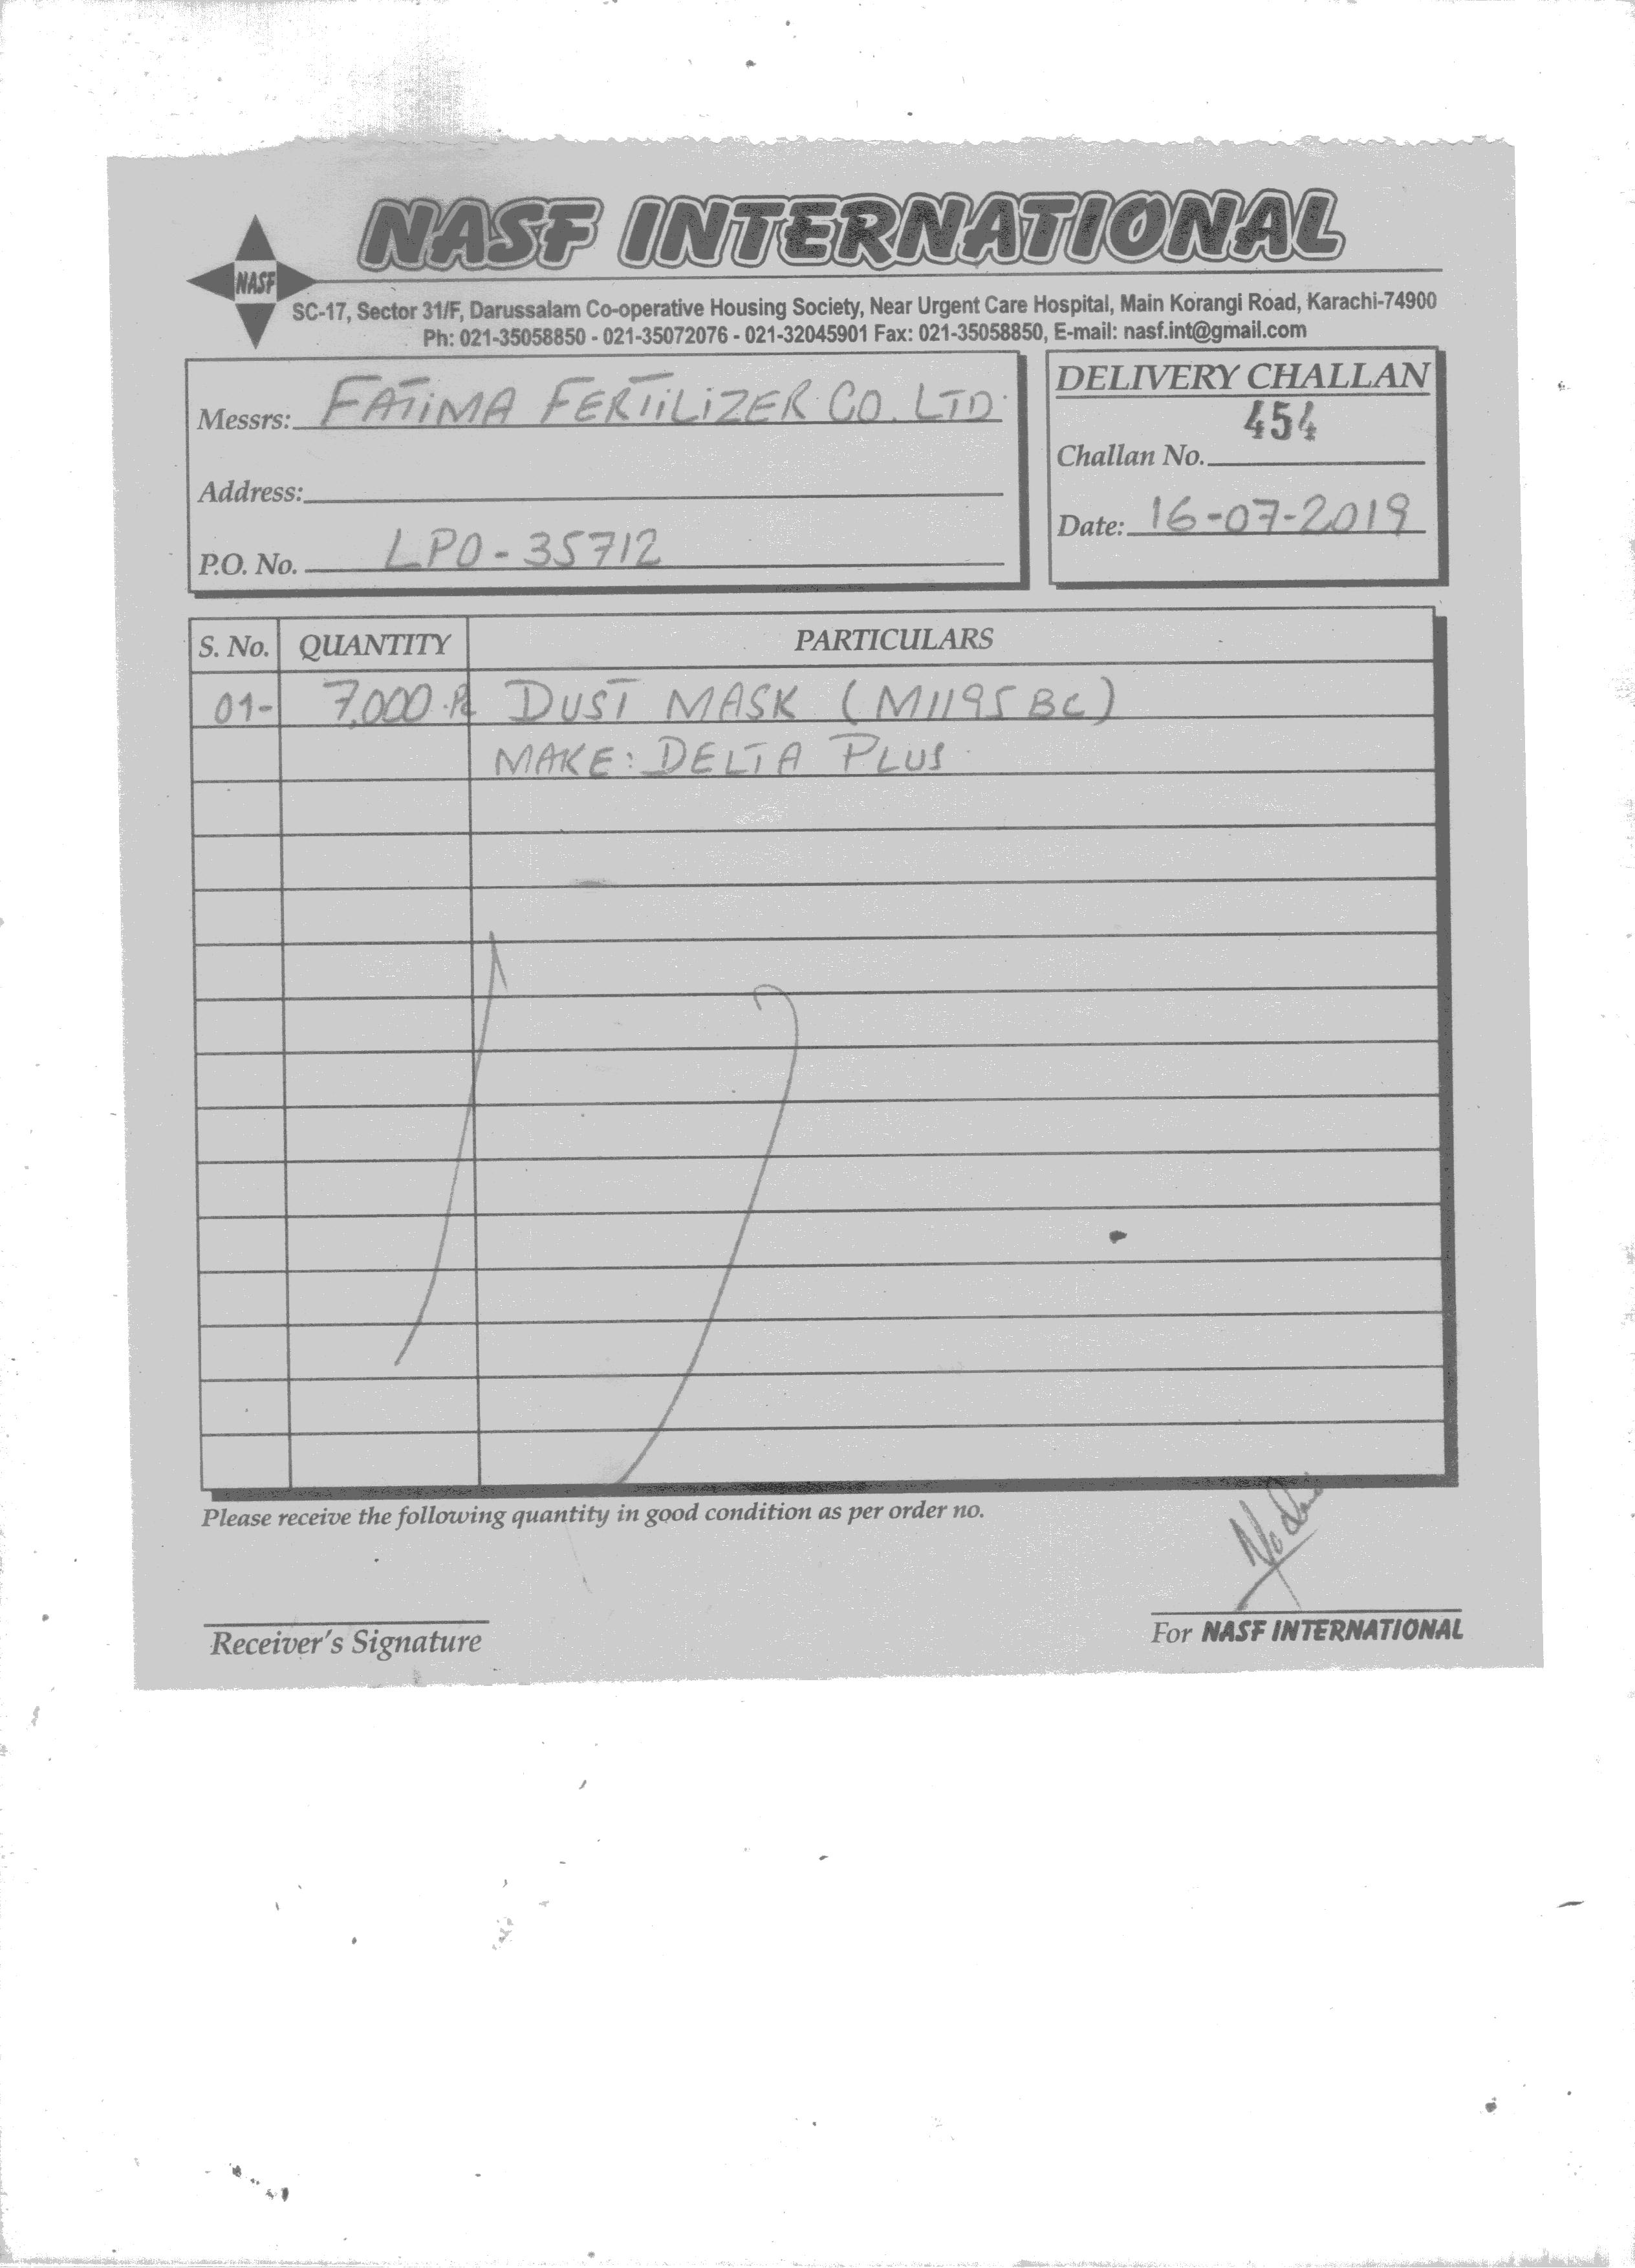 NASF INTERNATIONAL
NASF
SC-17, Sector 31/F, Darussalam Co-operative Housing Society, Near Urgent Care Hospital, Main Korangi Road, Karachi-74900
Ph: 021-35058850 - 021-35072076 - 021-32045901 Fax: 021-35058850, E-mail: nasf.int@gmail.com
Messrs: FATIMA FERTILIZER CO. LTD.
Address:
P.O. No. LPO-35712
DELIVERY CHALLAN
454
Challan No.
Date: 16-07-2019
S. No. QUANTITY PARTICULARS
01- 7,000 Pc DUST MASK (M1195 BC)
MAKE: DELTA PLUS
Please receive the following quantity in good condition as per order no.
Receiver's Signature
For NASF INTERNATIONAL